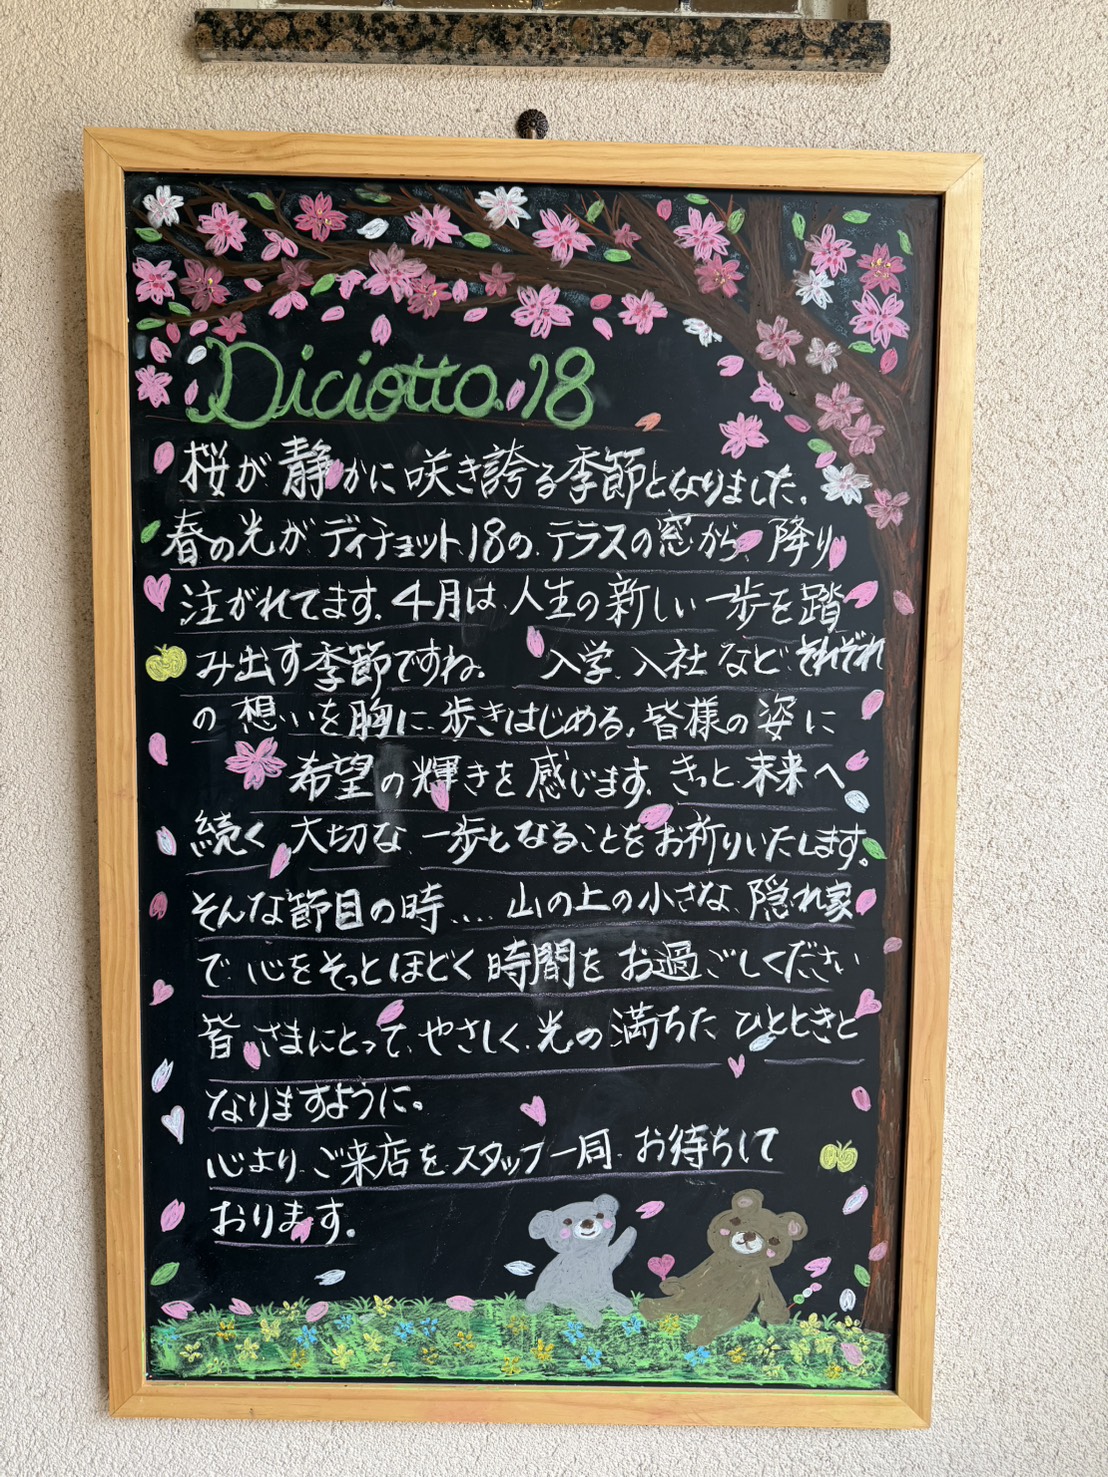 Diciotto.18
桜が静かに咲き誇る季節となりました。
春の光がディチョット18のテラスの窓から、降り
注がれてます。4月は、人生の新しい一歩を踏
み出す季節ですね。 入学、入社などそれぞれ
の想いを胸に歩きはじめる、皆様の姿に
希望の輝きを感じます。きっと未来へ
続く大切な一歩となることをお祈りいたします。
そんな節目の時....山の上の小さな、隠れ家
で心をそっとほどく時間をお過ごしください
皆さまにとって、やさしく、光の満ちたひとときと
なりますように。
心より、ご来店をスタッフ一同お待ちして
おります。